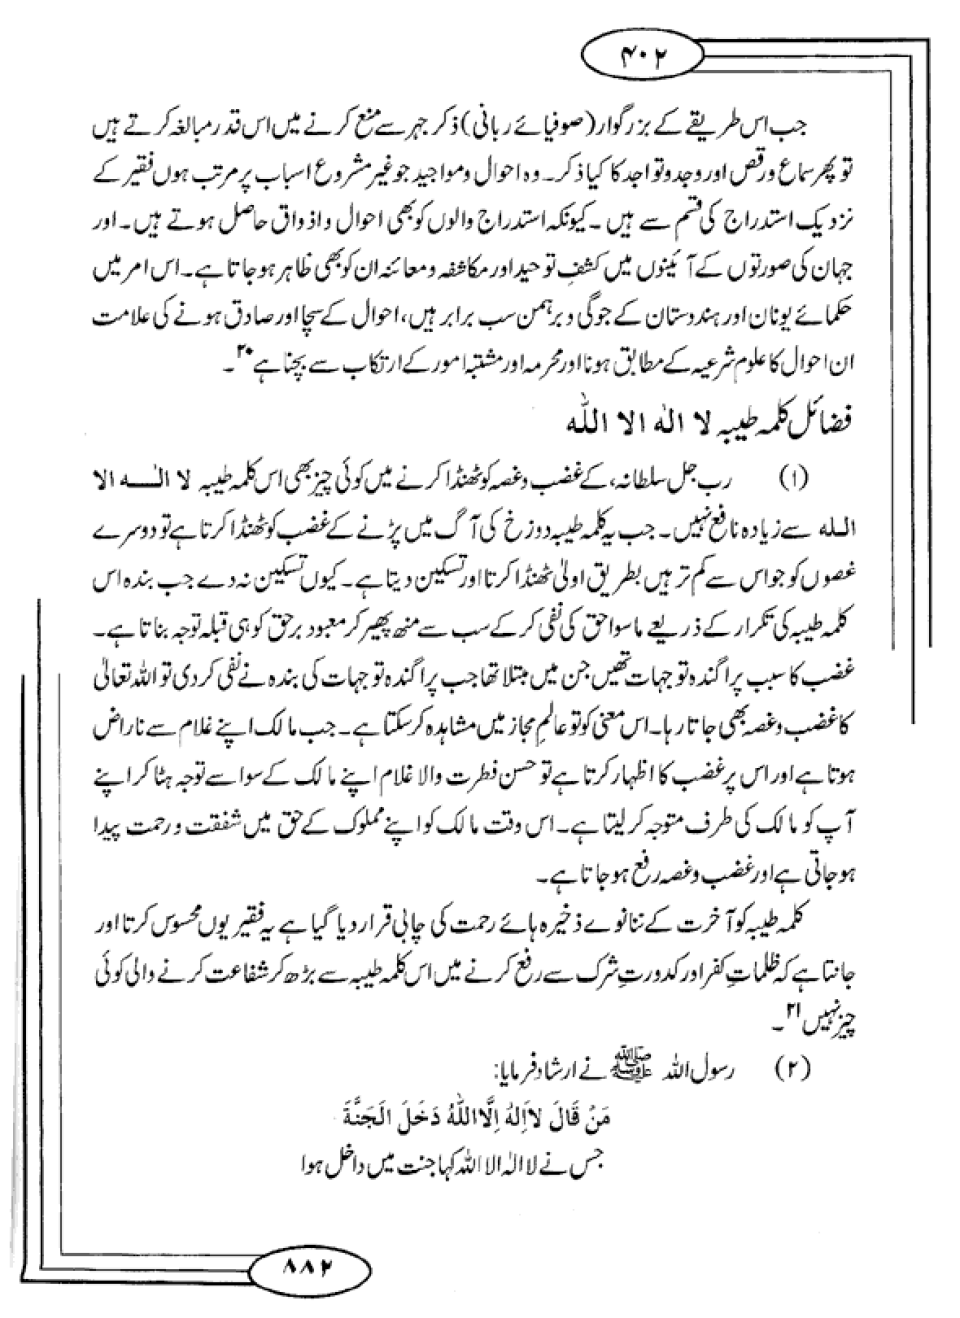 ۴۰۲
جب اس طریقے کے بزرگوار (صوفیائے ربانی) ذکر جہر سے منع کرنے میں اس قدر مبالغہ کرتے ہیں
تو پھر سماع و رقص اور وجد و تواجد کا کیا ذکر۔ وہ احوال و مواجید جو غیر مشروع اسباب پر مرتب ہوں فقیر کے
نزدیک استدراج کی قسم سے ہیں ۔ کیونکہ استدراج والوں کو بھی احوال و اذواق حاصل ہوتے ہیں ۔ اور
جہان کی صورتوں کے آئینوں میں کشفِ توحید اور مکاشفہ و معائنہ ان کو بھی ظاہر ہو جاتا ہے۔ اس امر میں
حکمائے یونان اور ہندوستان کے جوگی و برہمن سب برابر ہیں، احوال کے سچا اور صادق ہونے کی علامت
ان احوال کا علوم شرعیہ کے مطابق ہونا اور محرمہ اور مشتبہ امور کے ارتکاب سے بچنا ہے ۲۰۔
فضائل کلمہ طیبہ لا الہ الا اللہ
(۱) رب جل سلطانہ، کے غضب و غصہ کو ٹھنڈا کرنے میں کوئی چیز بھی اس کلمہ طیبہ لا الـــہ الا
الـلہ سے زیادہ نافع نہیں ۔ جب یہ کلمہ طیبہ دوزخ کی آگ میں پڑنے کے غضب کو ٹھنڈا کرتا ہے تو دوسرے
غصوں کو جو اس سے کم تر ہیں بطریق اولیٰ ٹھنڈا کرتا اور تسکین دیتا ہے۔ کیوں تسکین نہ دے جب بندہ اس
کلمہ طیبہ کی تکرار کے ذریعے ماسوا حق کی نفی کر کے سب سے منھ پھیر کر معبود برحق کو ہی قبلہ توجہ بناتا ہے۔
غضب کا سبب پراگندہ توجہات تھیں جن میں مبتلا تھا جب پراگندہ توجہات کی بندہ نے نفی کر دی تو اللہ تعالیٰ
کا غضب و غصہ بھی جاتا رہا۔ اس معنی کو تو عالمِ مجاز میں مشاہدہ کر سکتا ہے۔ جب مالک اپنے غلام سے ناراض
ہوتا ہے اور اس پر غضب کا اظہار کرتا ہے تو حسن فطرت والا غلام اپنے مالک کے سوا سے توجہ ہٹا کر اپنے
آپ کو مالک کی طرف متوجہ کر لیتا ہے۔ اس وقت مالک کو اپنے مملوک کے حق میں شفقت و رحمت پیدا
ہو جاتی ہے اور غضب و غصہ رفع ہو جاتا ہے۔
کلمہ طیبہ کو آخرت کے ننانوے ذخیرہ ہائے رحمت کی چابی قرار دیا گیا ہے یہ فقیر یوں محسوس کرتا اور
جانتا ہے کہ ظلماتِ کفر اور کدورتِ شرک سے رفع کرنے میں اس کلمہ طیبہ سے بڑھ کر شفاعت کرنے والی کوئی
چیز نہیں ۲۱۔
(۲) رسول اللہ ﷺ نے ارشاد فرمایا:
مَنْ قَالَ لاَاِلٰهَ اِلَّااللّٰهُ دَخَلَ الْجَنَّةَ
جس نے لا الٰہ الا اللہ کہا جنت میں داخل ہوا
۸۸۲